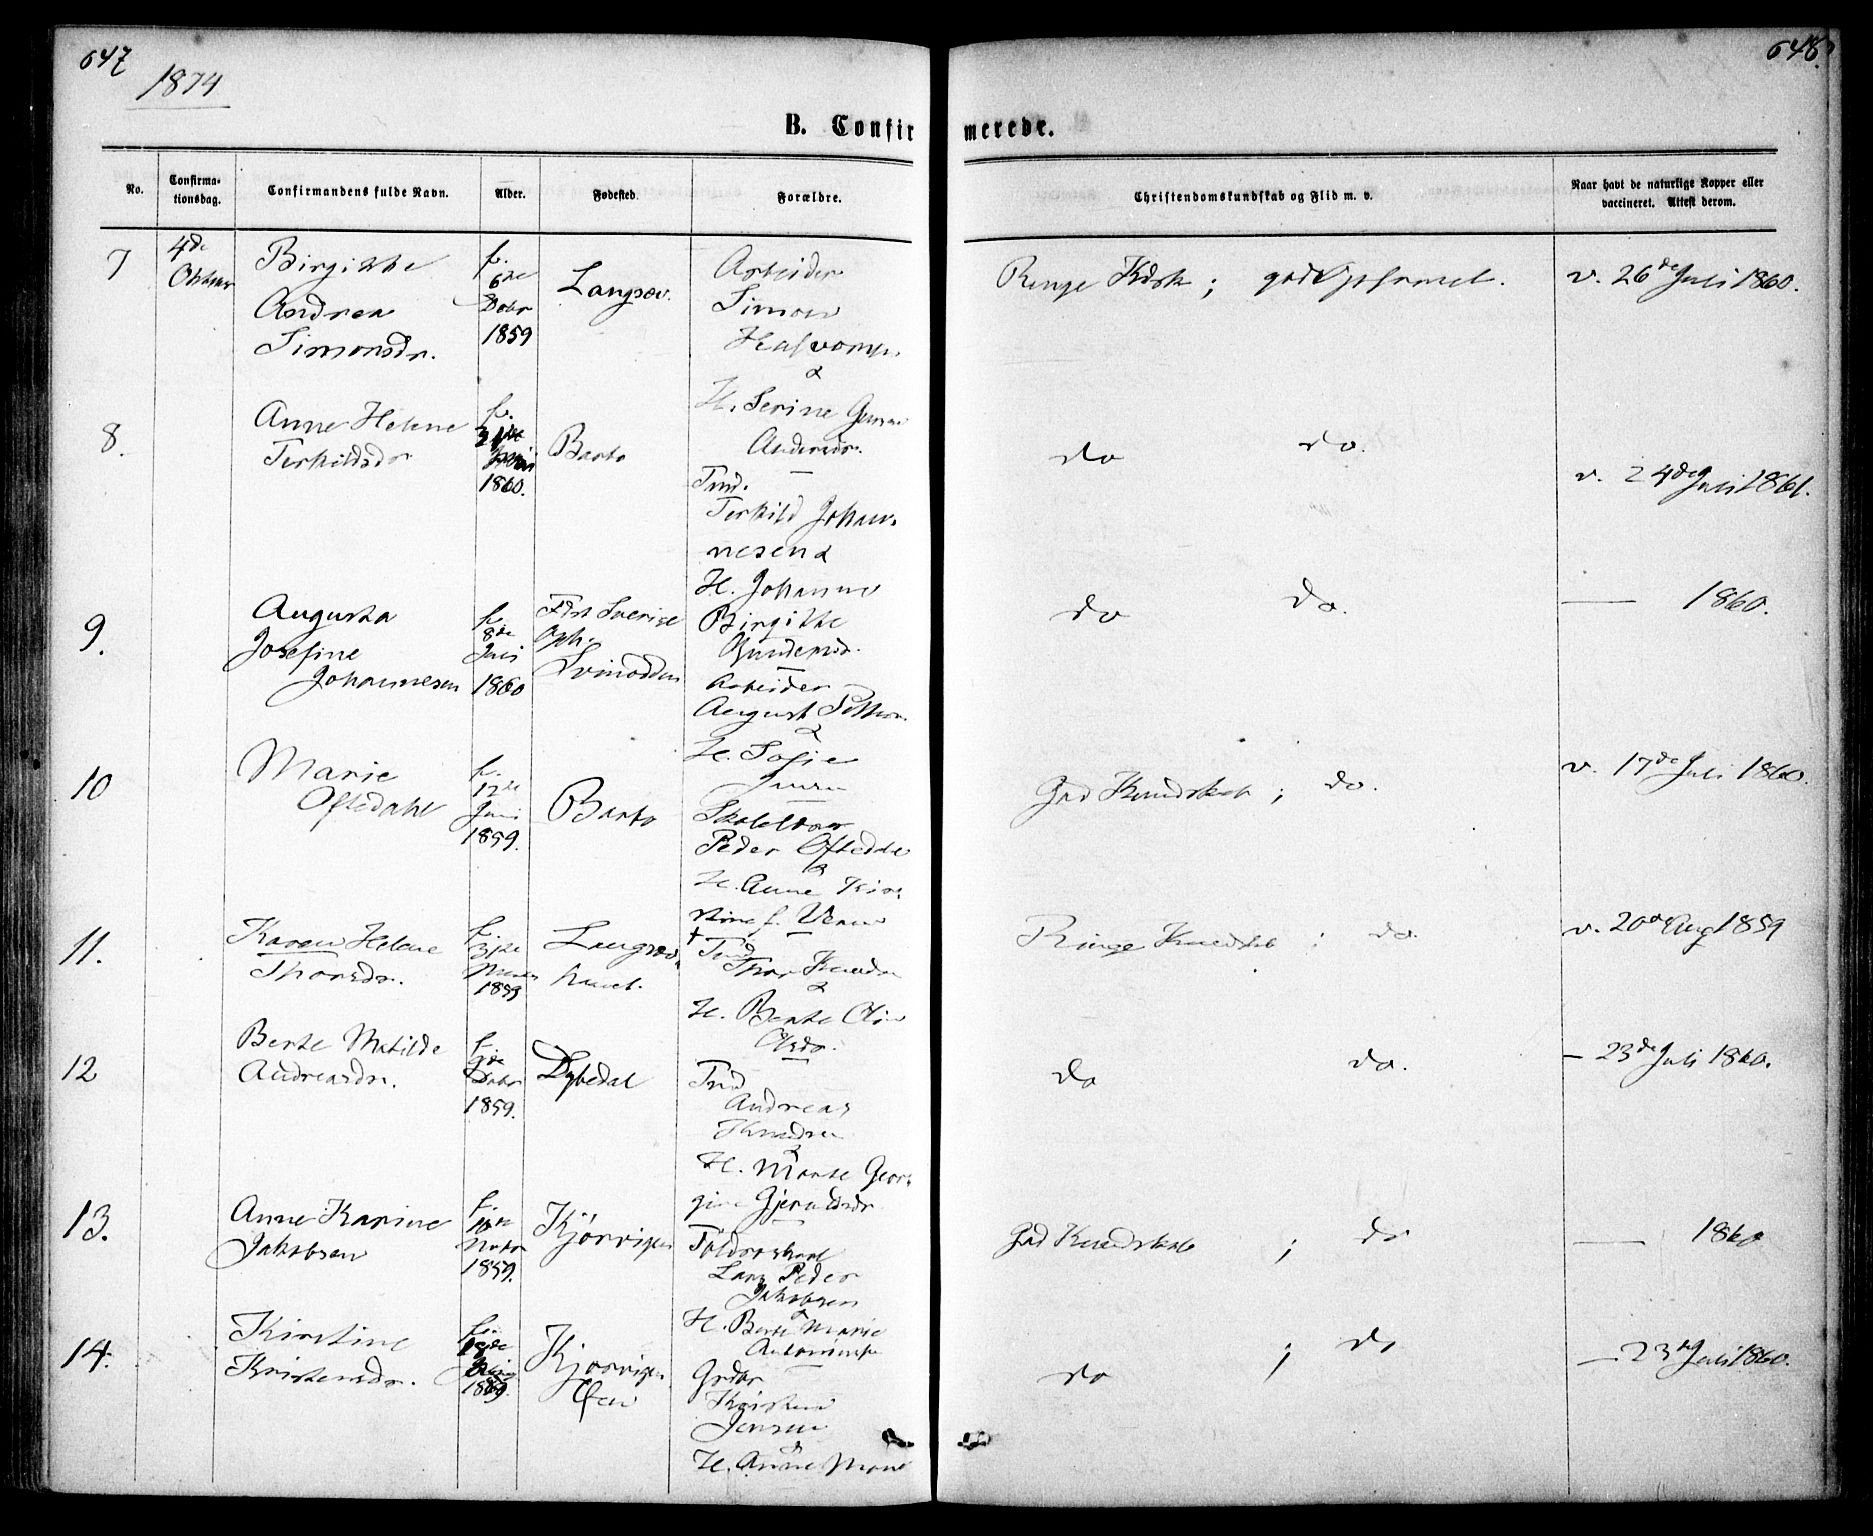 647
1874
648.
B. Confirmerede.
No.
Confirma-
tionsdag.
Confirmandens fulde Navn.
Alder.
Fødested.
Forældre.
Christendomskundskab og Flid m. v.
Naar havt de naturlige Kopper eller
vaccineret. Attest derom.
7
4de
Birgitthe
Andrea
Simonsdr.
f.
6te
1859
Langsæv.
Arbeider
Simon
Halvorsen
&
H. Serine
Andersdr.
v. 26de Juli 1860.
8.
Anne Helene
Terkildsdr
f.
1860.
Barbo
Terkild Johan-
nesen &
H. Johanne
Birgitthe
Gundersdr.
do do.
v. 24de Juli 1861.
9.
Augusta
Josefine
Johannesen
f.
8de
Juli
1860
Fdst Sverige
Oph.
Svinodden
Arbeider
August
&
H. Sofie
do do.
— 1860.
10
Marie
Oftedahl
f.
12te
Juni
1859.
Barbo
Peder Oftedahl
&
H. Anne Kir-
stine f.
God Kundskab ; do.
v. 17de Juli 1860.
11.
Karen Helene
Thorsdr.
f.
31te
1859
Thor Knudsen
&
H. Berte
Olsdr.
Ringe Kundskab ; do.
v. 20de Aug 1859
12
Berte Matilde
Andreasdr.
f.
1859.
Dybedal
Andreas
Knudsen
&
H. Marte Geor-
gine Gjeruldsdr
do do.
— 23de Juli 1860.
13.
Anne Karine
Jakobsen
f.
1859.
Kjørvigen
Lars Peder
Jakobsen
&
H. Berte Marie
God Kundskab ; do
— 1860
14.
Kirstine
Kristensdr.
f.
Kjørvigen
Kristen
Jensen
&
H. Anne
do ; do
— 23de Juli 1860.